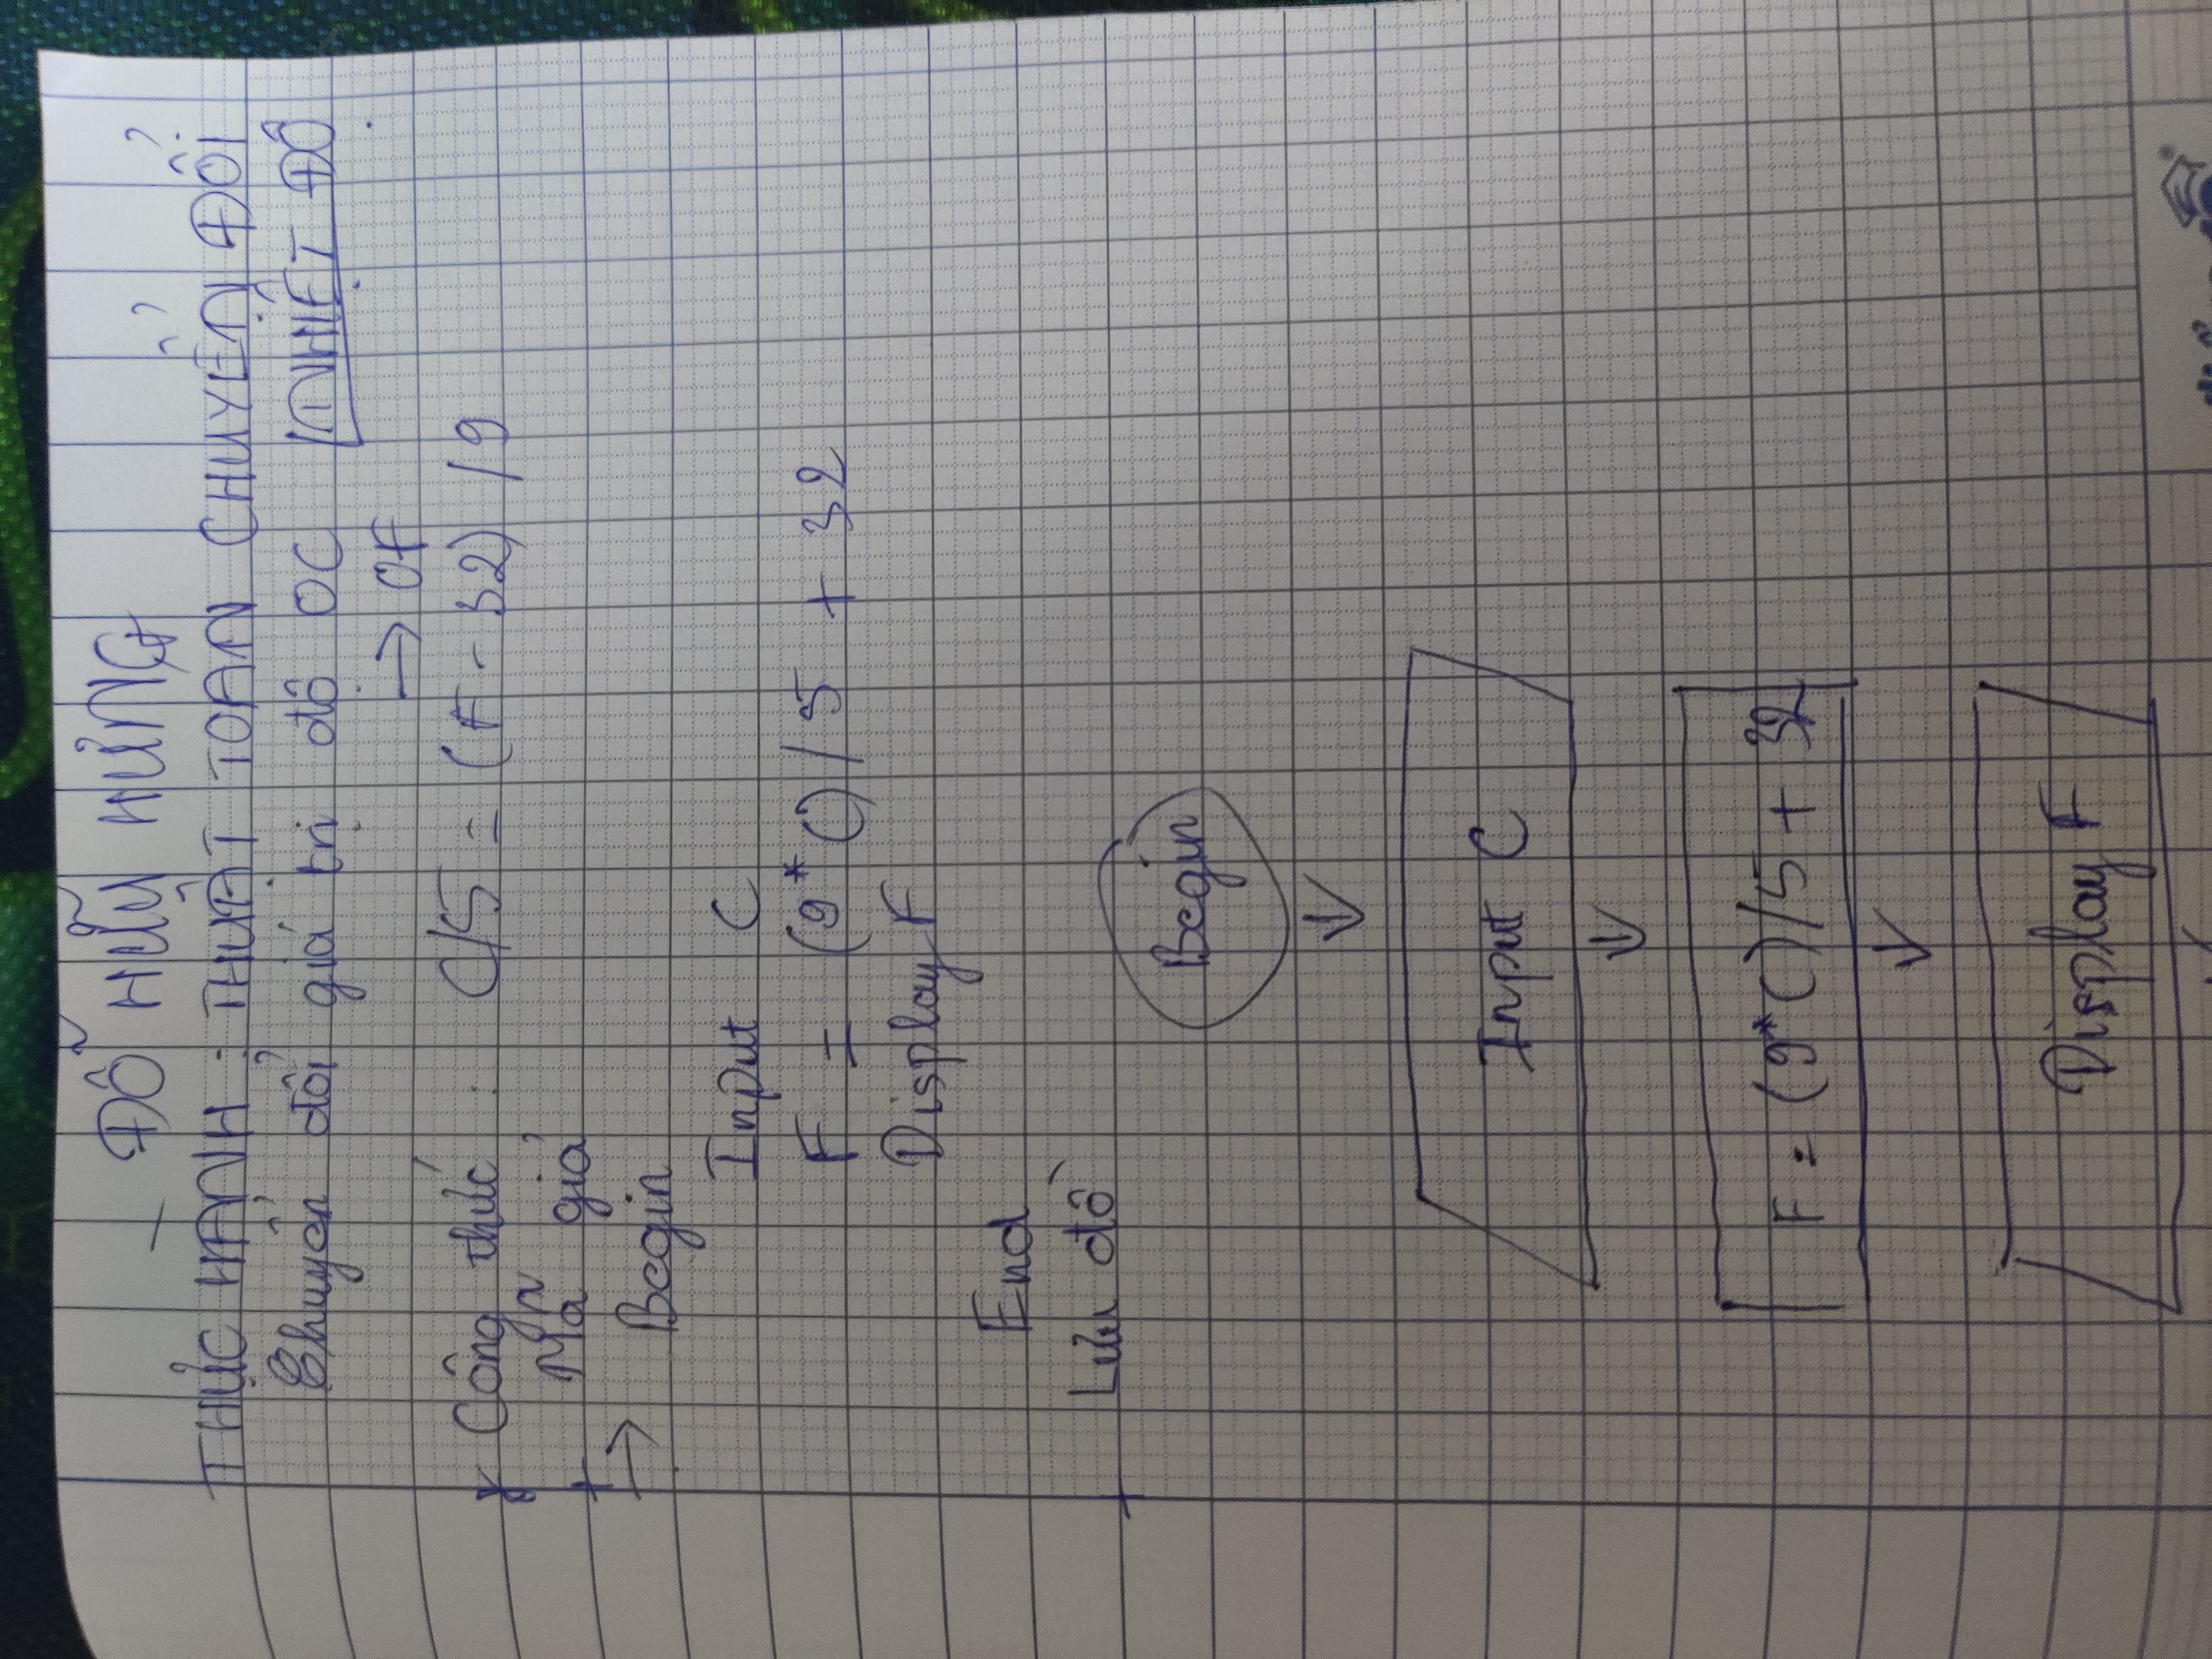 ĐỖ HỮU HƯNG
THỰC HÀNH : THUẬT TOÁN CHUYỂN ĐỔI
NHIỆT ĐỘ
Chuyển đổi giá trị độ OC
→ OF
Công thức : C/5 = (F - 32) / 9
Mã giả
→ Begin
Input C
F = (9*C) / 5 + 32
Display F
End
Lưu đồ
Begin
Input C
F = (9*C)/5 + 32
Display F